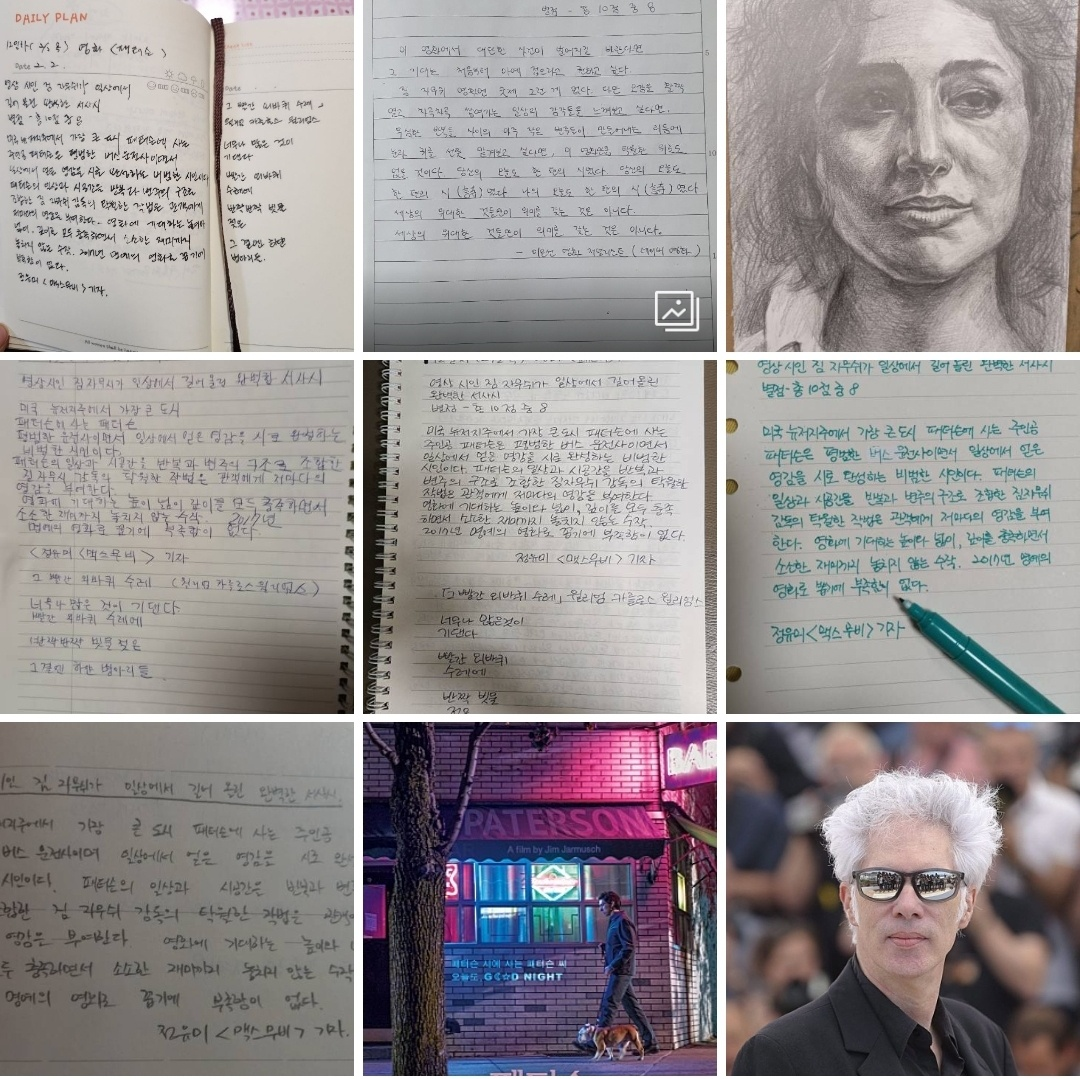 DAILY PLAN
영화 <패터슨>
영상 시인 짐 자무쉬가 일상에서
길어 올린 완벽한 서사시
별점 - 총 10점 중 8
미국 뉴저지주에서 가장 큰 도시 패터슨에 사는
주인공 패터슨은 평범한 버스 운전사이면서
일상에서 얻은 영감을 시로 완성하는 비범한 시인이다.
패터슨의 일상과 시공간을 반복과 변주의 구조로
조합한 짐 자무쉬 감독의 탁월한 작법은 관객에게
저마다의 영감을 부여한다. 영화에 기대하는 높이와
넓이, 깊이를 모두 충족하면서 소소한 재미까지
놓치지 않은 수작. 2017년 명예의 영화로 꼽기에
부족함이 없다.
정유미 <맥스무비> 기자.
그 빨간 외바퀴 수레,
윌리엄 카를로스 윌리엄스
너무나 많은 것이
기댄다
빨간 외바퀴
수레에
반짝반짝 빗물
젖은
그 곁엔 하얀
병아리들.
별점 - 총 10점 중 8
이 영화에서 대단한 사건이 벌어지길 바란다면
그 기대는 처음부터 아예 접으라고 권하고 싶다.
짐 자무쉬 영화란 웃제 그런 게 없다. 다만 오감을 활짝
열고 차곡차곡 쌓여가는 일상의 감각들을 느껴보고 싶다면,
유심한 반복을 사이의 아주 작은 변주들이 만들어내는 리듬에
눈과 귀를 전부 맡겨보고 싶다면, 이 영화만큼 탁월한 처방도
없을 것이다. 당신의 오늘도 한 편의 시였다. 당신의 오늘도
한 편의 시(詩)였다. 나의 오늘도 한 편의 시(詩)였다.
세상의 위대한 것들만이 의미를 갖는 것은 아니다.
세상의 위대한 것들만이 의미를 갖는 것은 아니다.
- 이은선 영화 저널리스트
영상시인 짐 자무시가 일상에서 길어 올린 완벽한 서사시
미국 뉴저지주에서 가장 큰 도시
패터슨에 사는 패터슨
평범한 운전사이면서 일상에서 얻은 영감을 시로 완성하는
비범한 시인이다.
패터슨의 일상과 시공간을 반복과 변주의 구조로 조합한
짐 자무쉬 감독의 탁월한 작법은 관객에게 저마다의
영감을 부여한다.
영화에 기대하는 높이 넓이 깊이를 모두 충족하면서
소소한 재미까지 놓치지 않는 수작. 2017년
명예의 영화로 꼽기에 부족함이 없다.
<정유미 <맥스무비> 기자
그 빨간 외바퀴 수레 (윌리엄 카를로스 윌리엄스)
너무나 많은 것이 기댄다
빨간 외바퀴 수레에
반짝반짝 빗물 젖은
그 곁엔 하얀 병아리들.
영상 시인 짐 자무쉬가 일상에서 길어올린
완벽한 서사시
별점 - 총 10점 중 8
미국 뉴저지주에서 가장 큰 도시 패터슨에 사는
주인공 패터슨은 평범한 버스 운전사이면서
일상에서 얻은 영감을 시로 완성하는 비범한
시인이다. 패터슨의 일상과 시공간을 반복과
변주의 구조로 조합한 짐자무쉬 감독의 탁월한
작법은 관객에게 저마다의 영감을 부여한다.
영화에 기대하는 높이와 넓이, 깊이를 모두 충족
하면서 소소한 재미까지 놓치지 않는 수작.
2017년 명예의 영화로 꼽기에 부족함이 없다.
정유미 <맥스무비> 기자
「그 빨간 외바퀴 수레」, 윌리엄 카를로스 윌리엄스
너무나 많은것이
기댄다
빨간 외바퀴
수레에
반짝 빗물
젖은
영상 시인 짐 자무쉬가 일상에서 길어 올린 완벽한 서사시
별점 - 총 10점 중 8
미국 뉴저지주에서 가장 큰 도시 패터슨에 사는 주인공
패터슨은 평범한 버스 운전사이면서 일상에서 얻은
영감을 시로 완성하는 비범한 시인이다. 패터슨의
일상과 시공간을 반복과 변주의 구조로 조합한 짐자무쉬
감독의 탁월한 작법은 관객에게 저마다의 영감을 부여
한다. 영화에 기대하는 높이와 넓이, 깊이를 충족하면서
소소한 재미까지 놓치지 않는 수작. 2017년 명예의
영화로 꼽기에 부족함이 없다.
정유미 <맥스무비> 기자
시인 짐 자무쉬가 일상에서 길어 올린 완벽한 서사시.
저지주에서 가장 큰 도시 패터슨에 사는 주인공
버스 운전사이며 일상에서 얻은 영감을 시로 완
시인이다. 패터슨의 일상과 시공간을 반복과 변
합한 짐 자무쉬 감독의 탁월한 작법은 관객
영감을 부여한다. 영화에 기대하는 높이와
두 충족하면서 소소한 재미까지 놓치지 않는 수작
명예의 영화로 꼽기에 부족함이 없다.
정유미 <맥스무비> 기자.
BAR
PATERSON
A film by Jim Jarmusch
패터슨 시에 사는 패터슨 씨
오늘도, GOOD NIGHT
패터슨